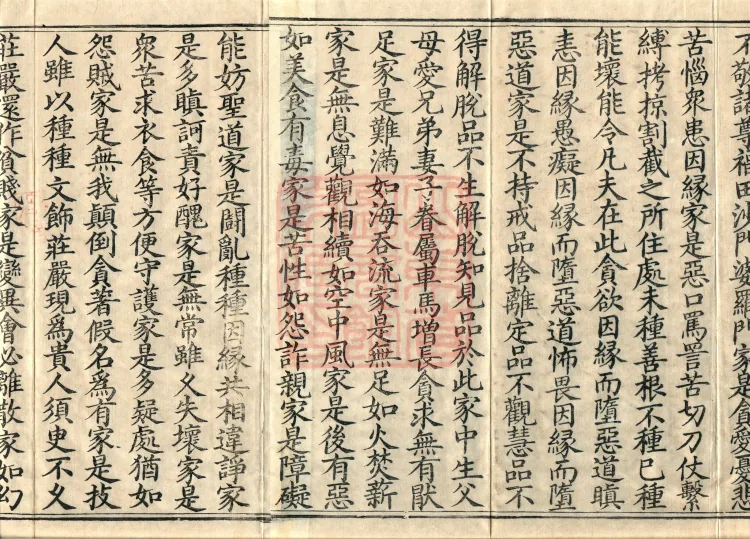 不敬諸尊福田沙門婆羅門家是貪愛憂悲
苦惱眾患因緣家是惡口罵詈苦切刀杖繫
縛拷掠割截之所住處未種善根不種已種
能壞能令凡夫在此貪欲因緣而墮惡道瞋
恚因緣愚癡因緣而墮惡道怖畏因緣而墮
惡道家是不持戒品捨離定品不觀慧品不
得解脫品不生解脫知見品於此家中生父
母愛兄弟妻子眷屬車馬增長貪求無有厭
足家是難滿如海吞流家是無足如火焚薪
家是無息覺觀相續如空中風家是後有惡
如美食有毒家是苦性如怨詐親家是障礙
能妨聖道家是鬪亂種種因緣共相違諍家
是多瞋訶責好醜家是無常雖久失壞家是
眾苦求衣食等方便守護家是多疑處猶如
怨賊家是無我顛倒貪著假名為有家是技
人雖以種種文飾莊嚴現為貴人須臾不久
莊嚴還作貧賤家是變異會必離散家如幻